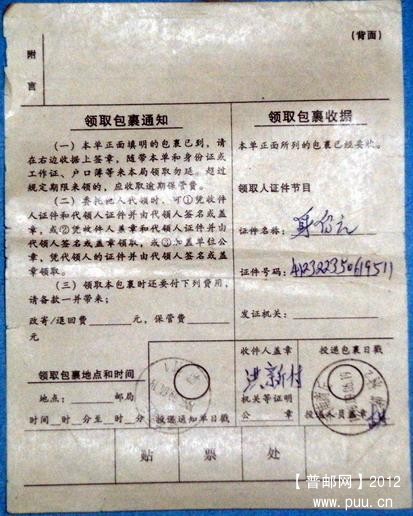 (背面)
附言
领取包裹通知
(一)本单正面填明的包裹已到，请
在右边收据上签章，随带本单和身份证或
工作证、户口簿等来本局领取勿延。超过
规定期限来领的，应收取逾期保管费。
(二)委托他人代领时，可①凭收件
人证件和代领人证件并由代领人签名或盖
章，或②凭收件人盖章和代领人证件并由
代领人签名或盖章领取，或③加盖单位公
章，凭代领人的证件并由代领人签名或盖
章领取。
(三)领取本包裹时还要付下列费用，
请备款一并带来：
改寄/退回费____元，保管费____
元
领取包裹收据
本单正面所列的包裹已经妥收。
领取人证件节目
证件名称：身份证
证件号码：412322350619511
发证机关：
领取包裹地点和时间
地点：____邮局
时间 时 分至 时 分
投递通知单日戳
收件人盖章
洪新村
机关等证明
公 章
投递包裹日戳
投递人员盖章
贴 票 处
【普邮网】2012
www.puu.cn